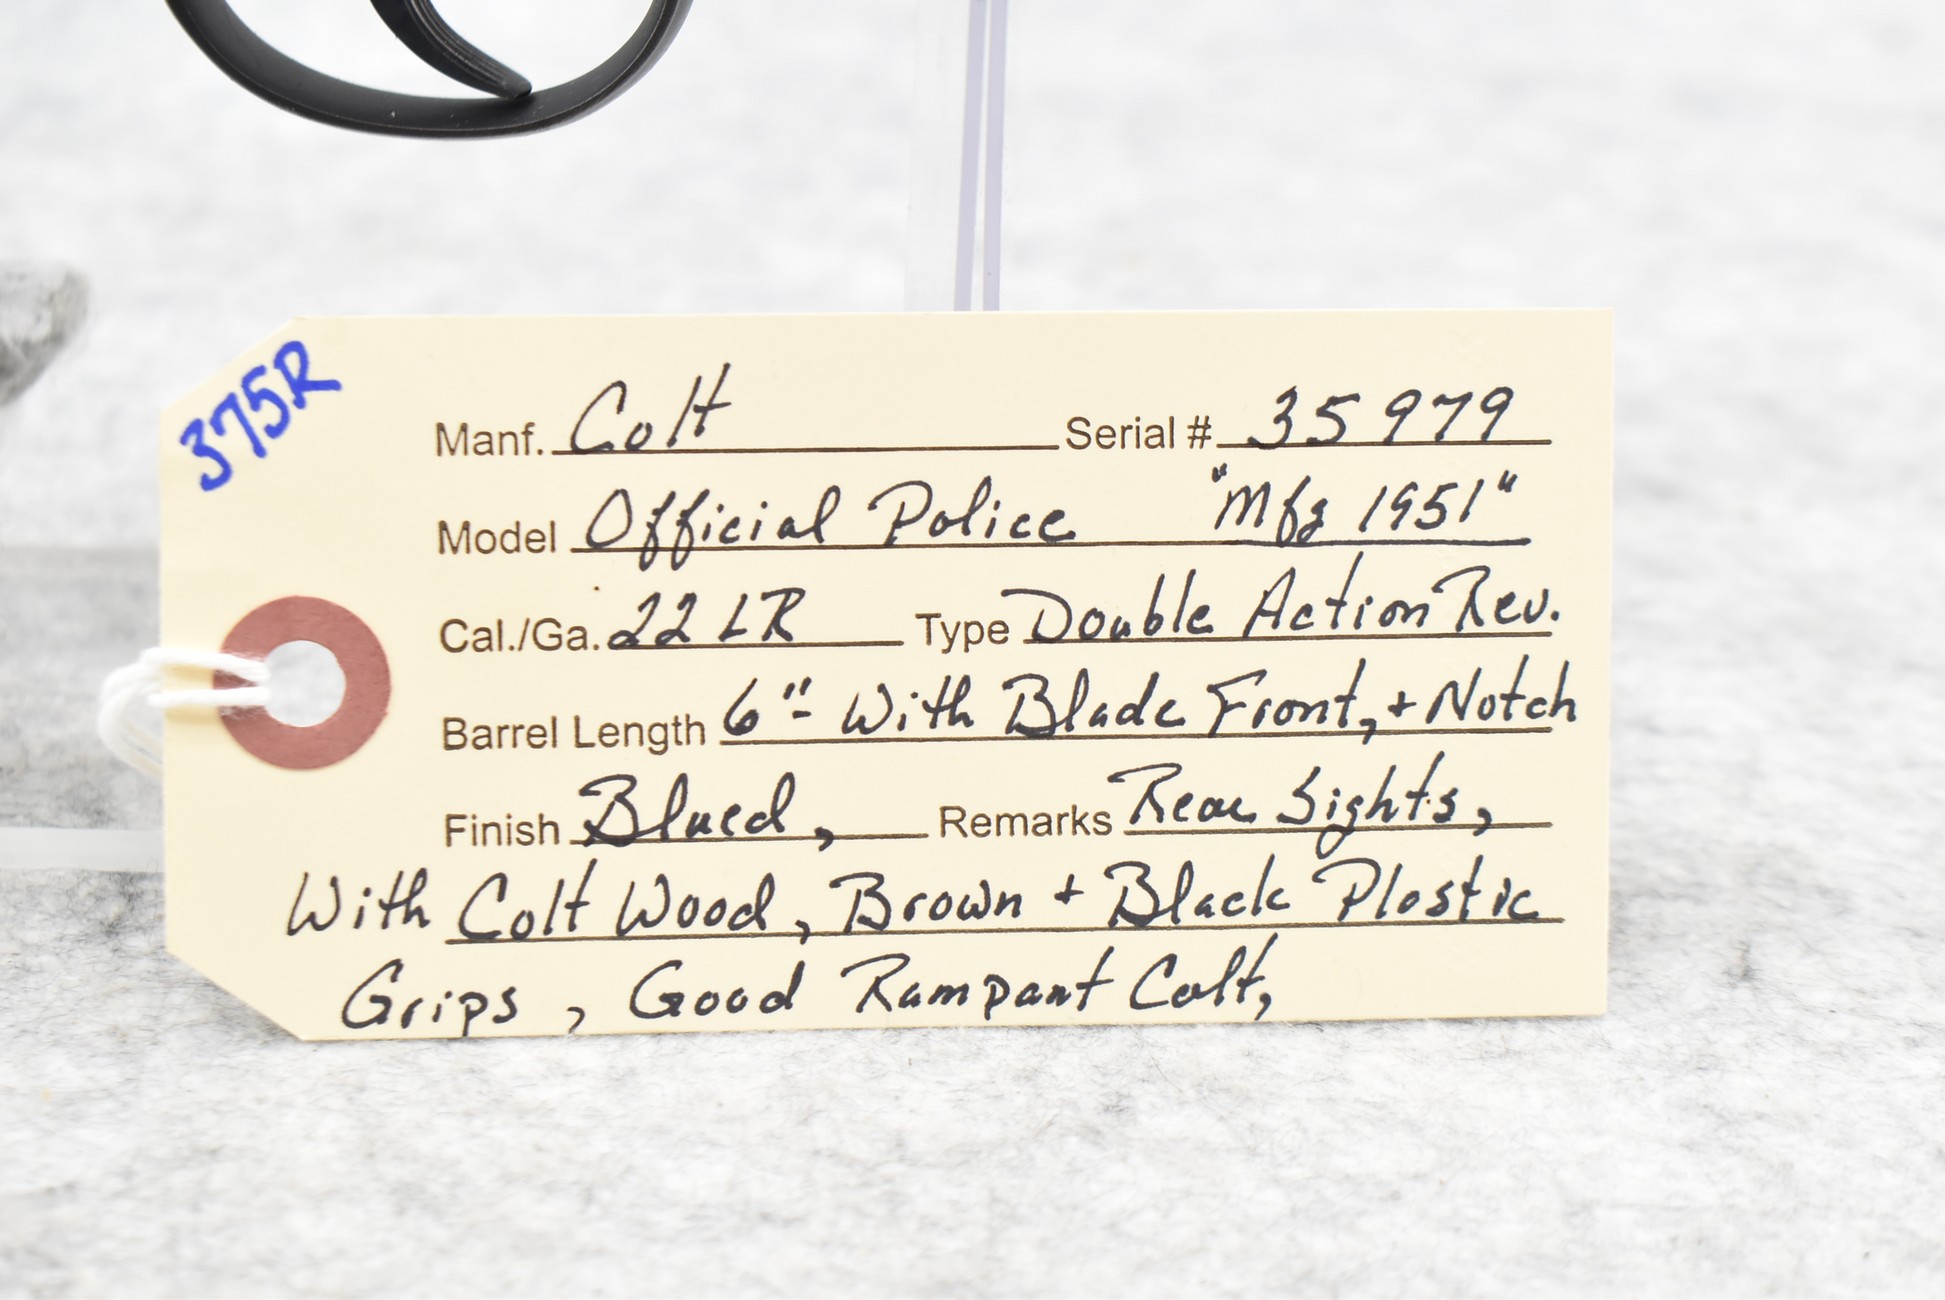 375R
Manf. Colt Serial # 35979
Model Official Police "Mfg 1951"
Cal./Ga. 22 LR Type Double Action Rev.
Barrel Length 6"- With Blade Front, + Notch
Finish Blued, Remarks Rear Sights,
With Colt Wood, Brown + Black Plastic
Grips, Good Rampant Colt,